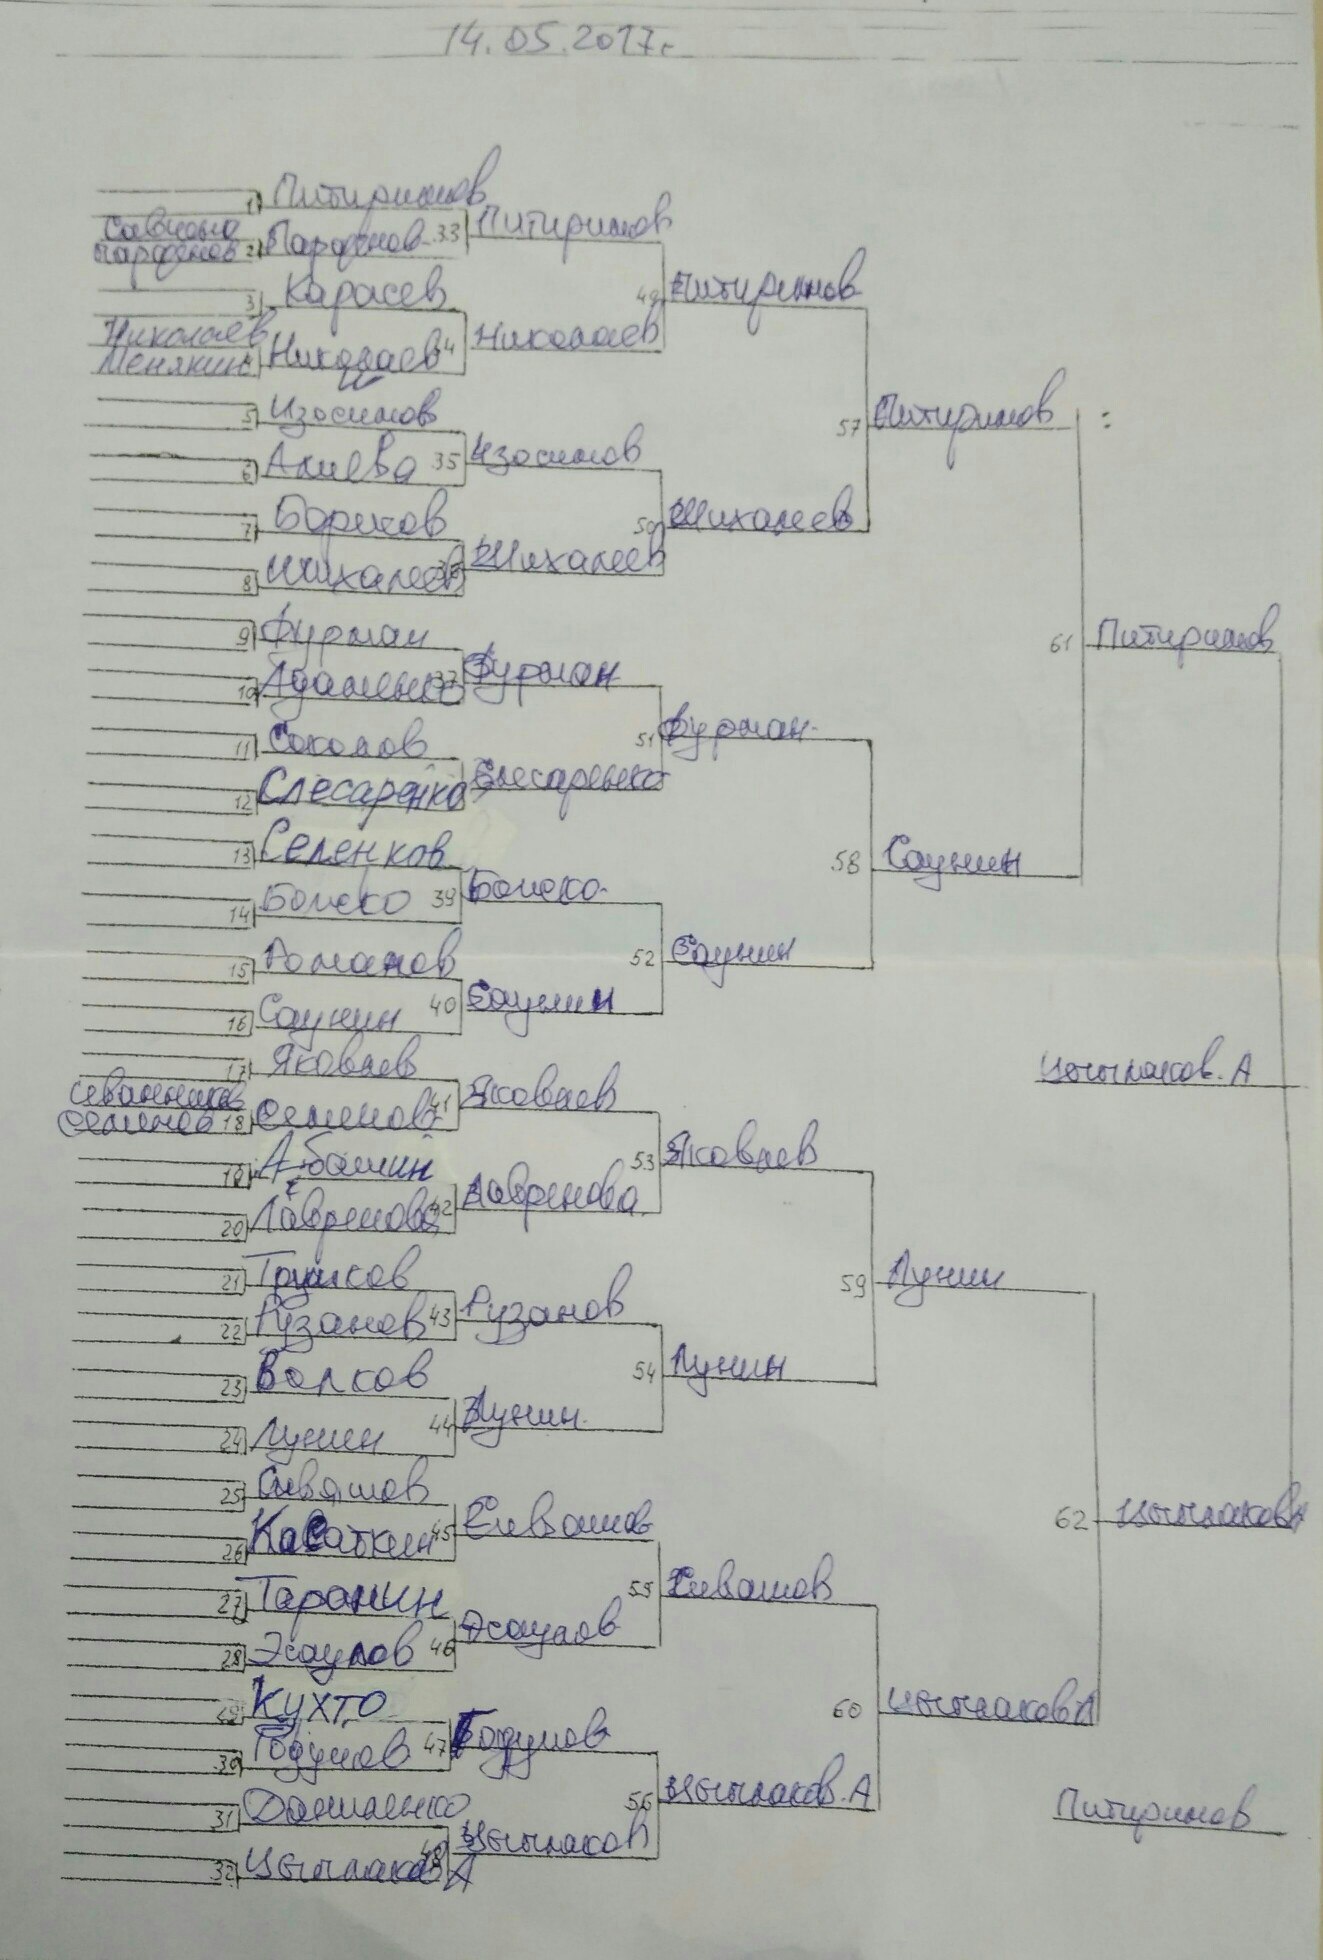 14.05.2017г
1 Питиримов
Парфенов 2 Парфенов 33 Питиримов
3 Карасев 49 Питиримов
Николаев
Менякин 4 Николаев 34 Николаев
5 Изосимов 57 Питиримов :
6 Алиева 35 Изосимов
7 Бориков 50 Шихалеев
8 Шихалеев 36 Шихалеев
9 Фурман 61 Питиримов
10 Адаменко 37 Фурман
11 Соколов 51 Фурман
12 Слесаренко Слесаренко
13 Селенков 58 Саунин
14 Бойско 39 Бойско
15 Романов 52 Саунин
16 Саунин 40 Саунин
17 Яковлев Цыплаков. А
18 Семенова 41 Яковлев
19 Абашин 53 Яковлев
20 Лавренова 42 Лавренова
21 Трушков 59 Лунин
22 Рузанов 43 Рузанов
23 Волков 54 Лунин
24 Лунин 44 Лунин
25 Сивашов 62 Цыплаков А
26 Касаткин 45 Сивашов
27 Таранин 55 Сивашов
28 Эсаулов 46 Эсаулов
29 Кухто 60 Цыплаков А
30 Годунов 47 Годунов
31 Даниленко 56 Цыплаков. А
32 Цыплаков А 48 Цыплаков
Питиримов